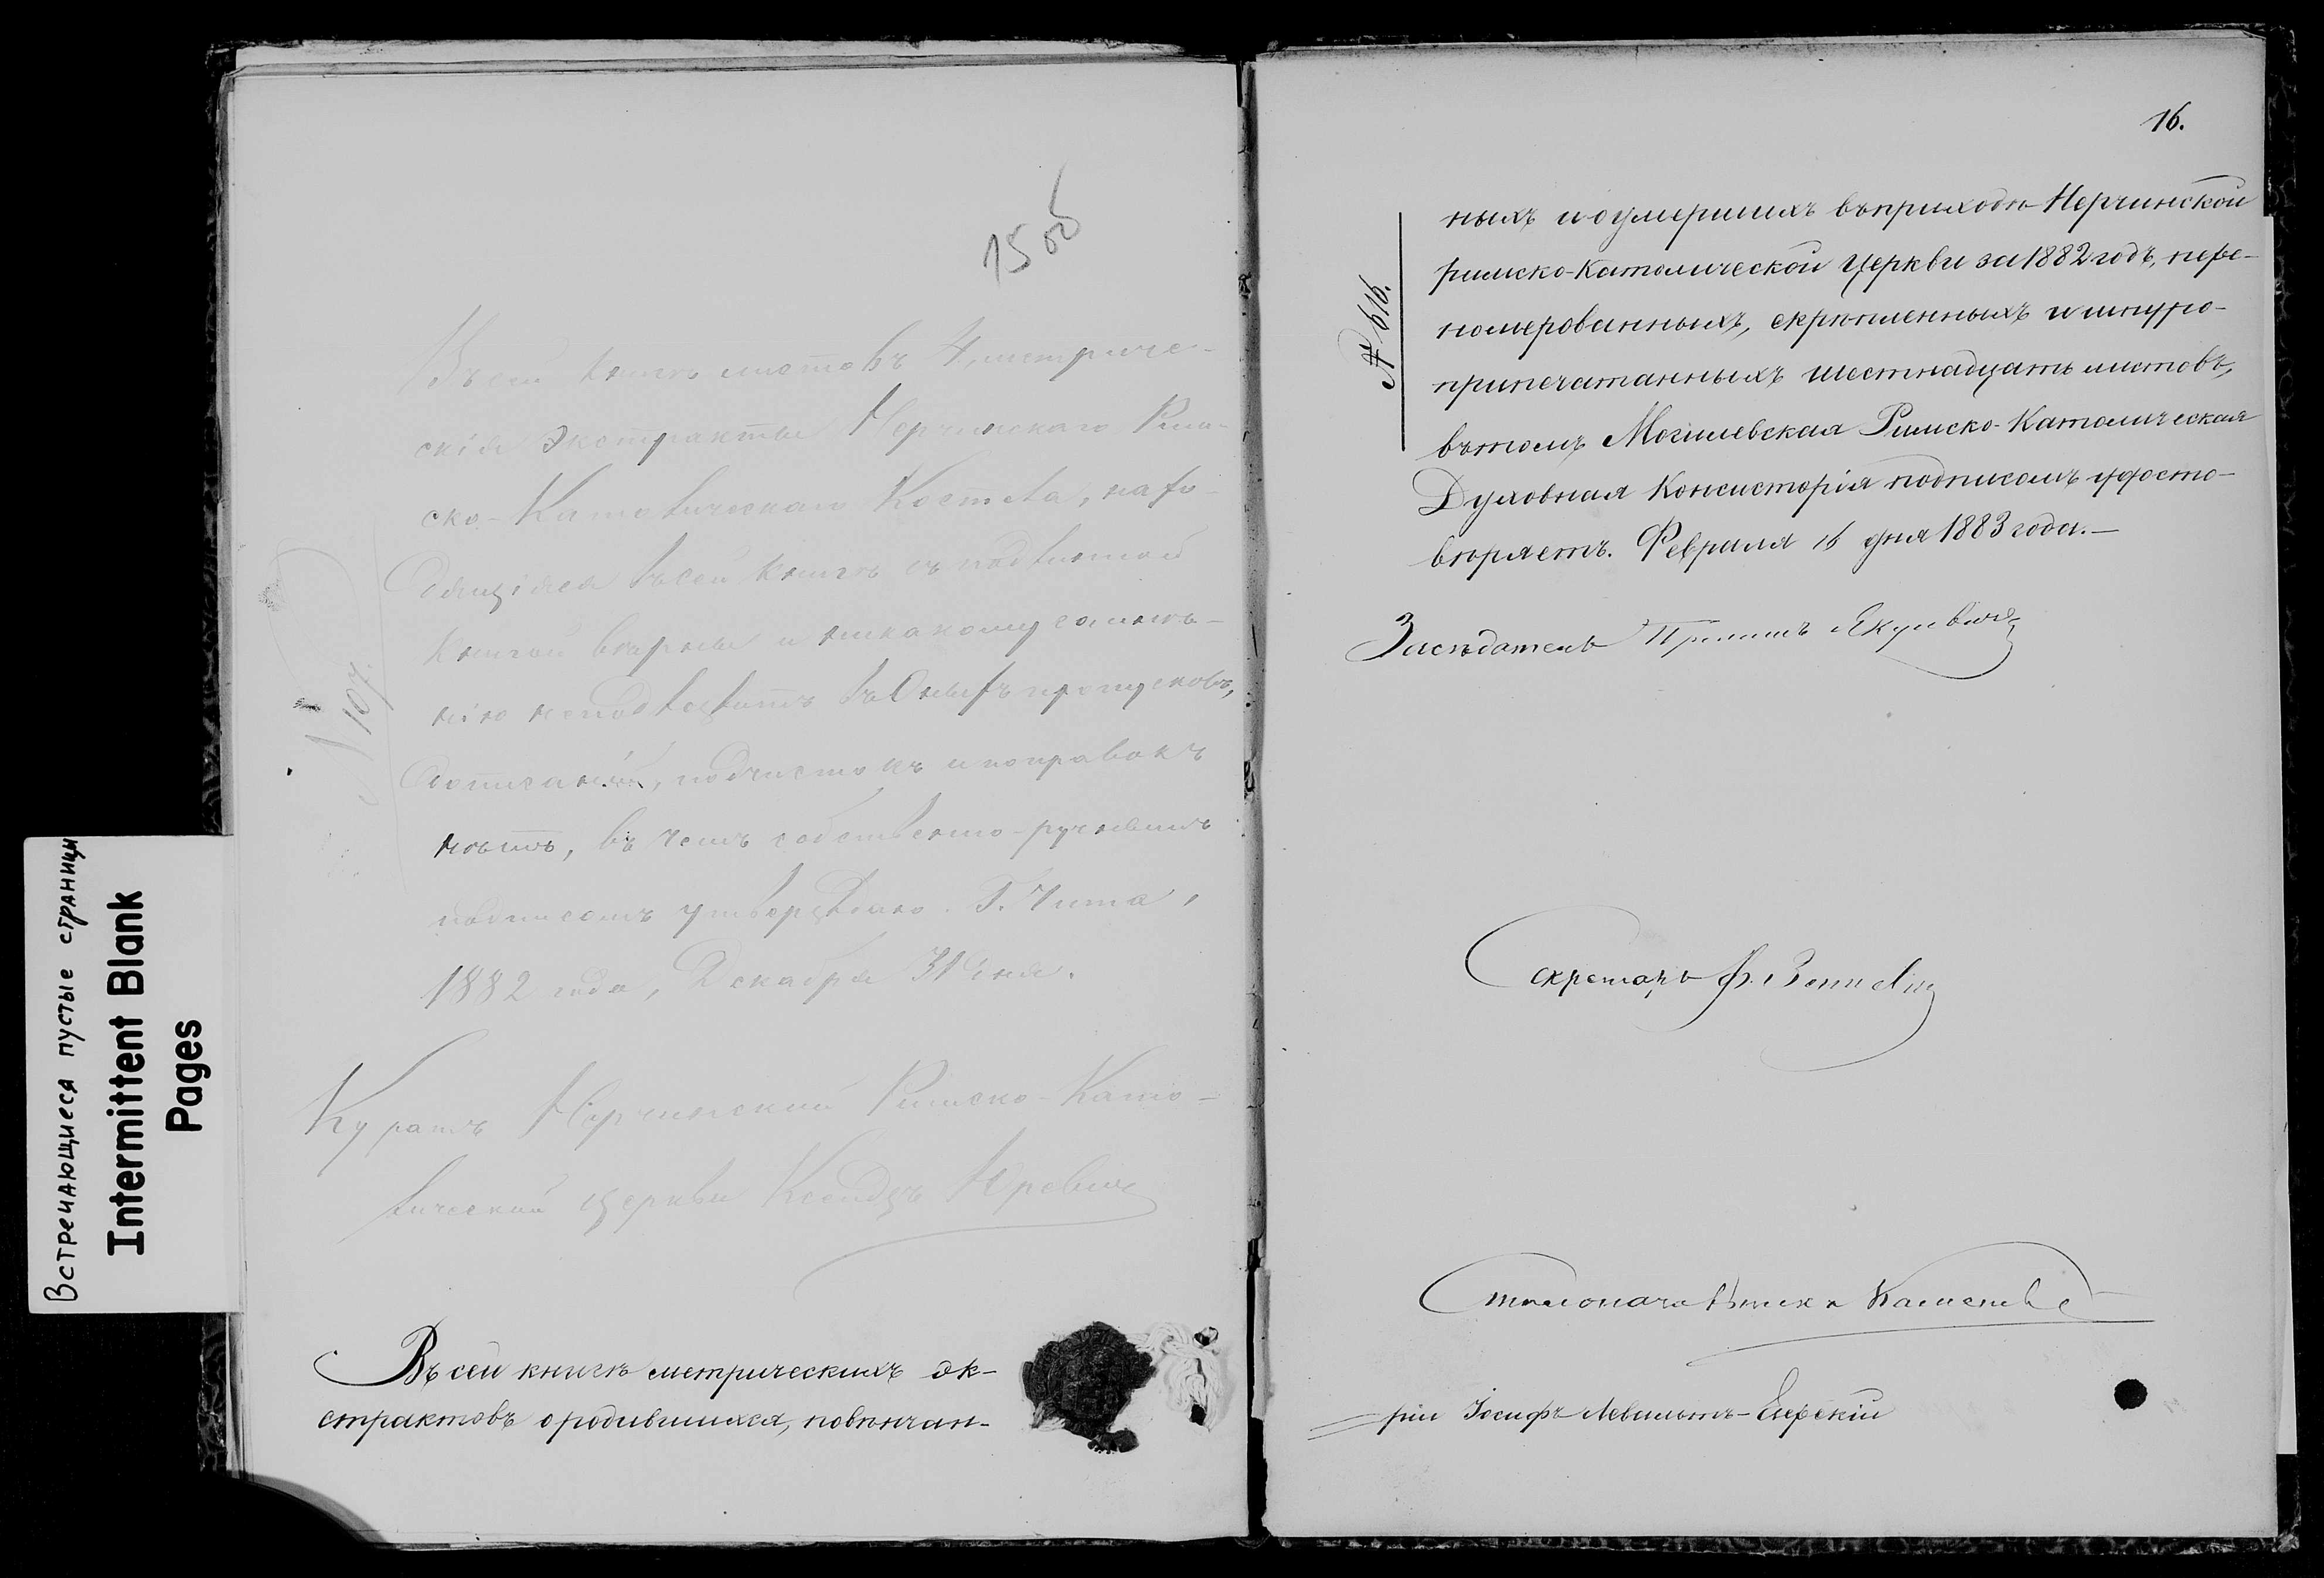 Встречающиеся пустые страницы
Intermittent Blank
Pages
15об
Въ сей книгѣ листовъ 4, метриче-
скія экстракты Нерчинскаго Рим-
ско-Католическаго Костела, нахо-
дящіяся въ сей книгѣ съ подлинной
книгой вѣрны и никакому сомнѣ-
нію неподлежатъ въ оныхъ пропусковъ,
дописаній, подчистокъ и поправокъ
нѣтъ, въ чемъ собственно-ручнымъ
подписомъ утверждаю. Г. Чита,
1882 года, Декабря 31 дня.
№ 107.
Куратъ Нерчинской Римско-Като-
лической церкви Ксендзъ Юревичъ
Въ сей книгѣ метрическихъ эк-
страктовъ о родившихся, повѣнчан-
16.
№ 616.
ныхъ и о умершихъ въ приходѣ Нерчинской
римско-католической церкви за 1882 годъ, пере-
номерованныхъ, скрѣпленныхъ и шнуро-
припечатанныхъ шестнадцать листовъ,
въ томъ Могилевская Римско-Католическая
Духовная Консисторія подписомъ удосто-
вѣряетъ. Февраля 16 дня 1883 года.—
Засѣдатель
Секретарь Ф.
Столоначальникъ
рій Іосифъ